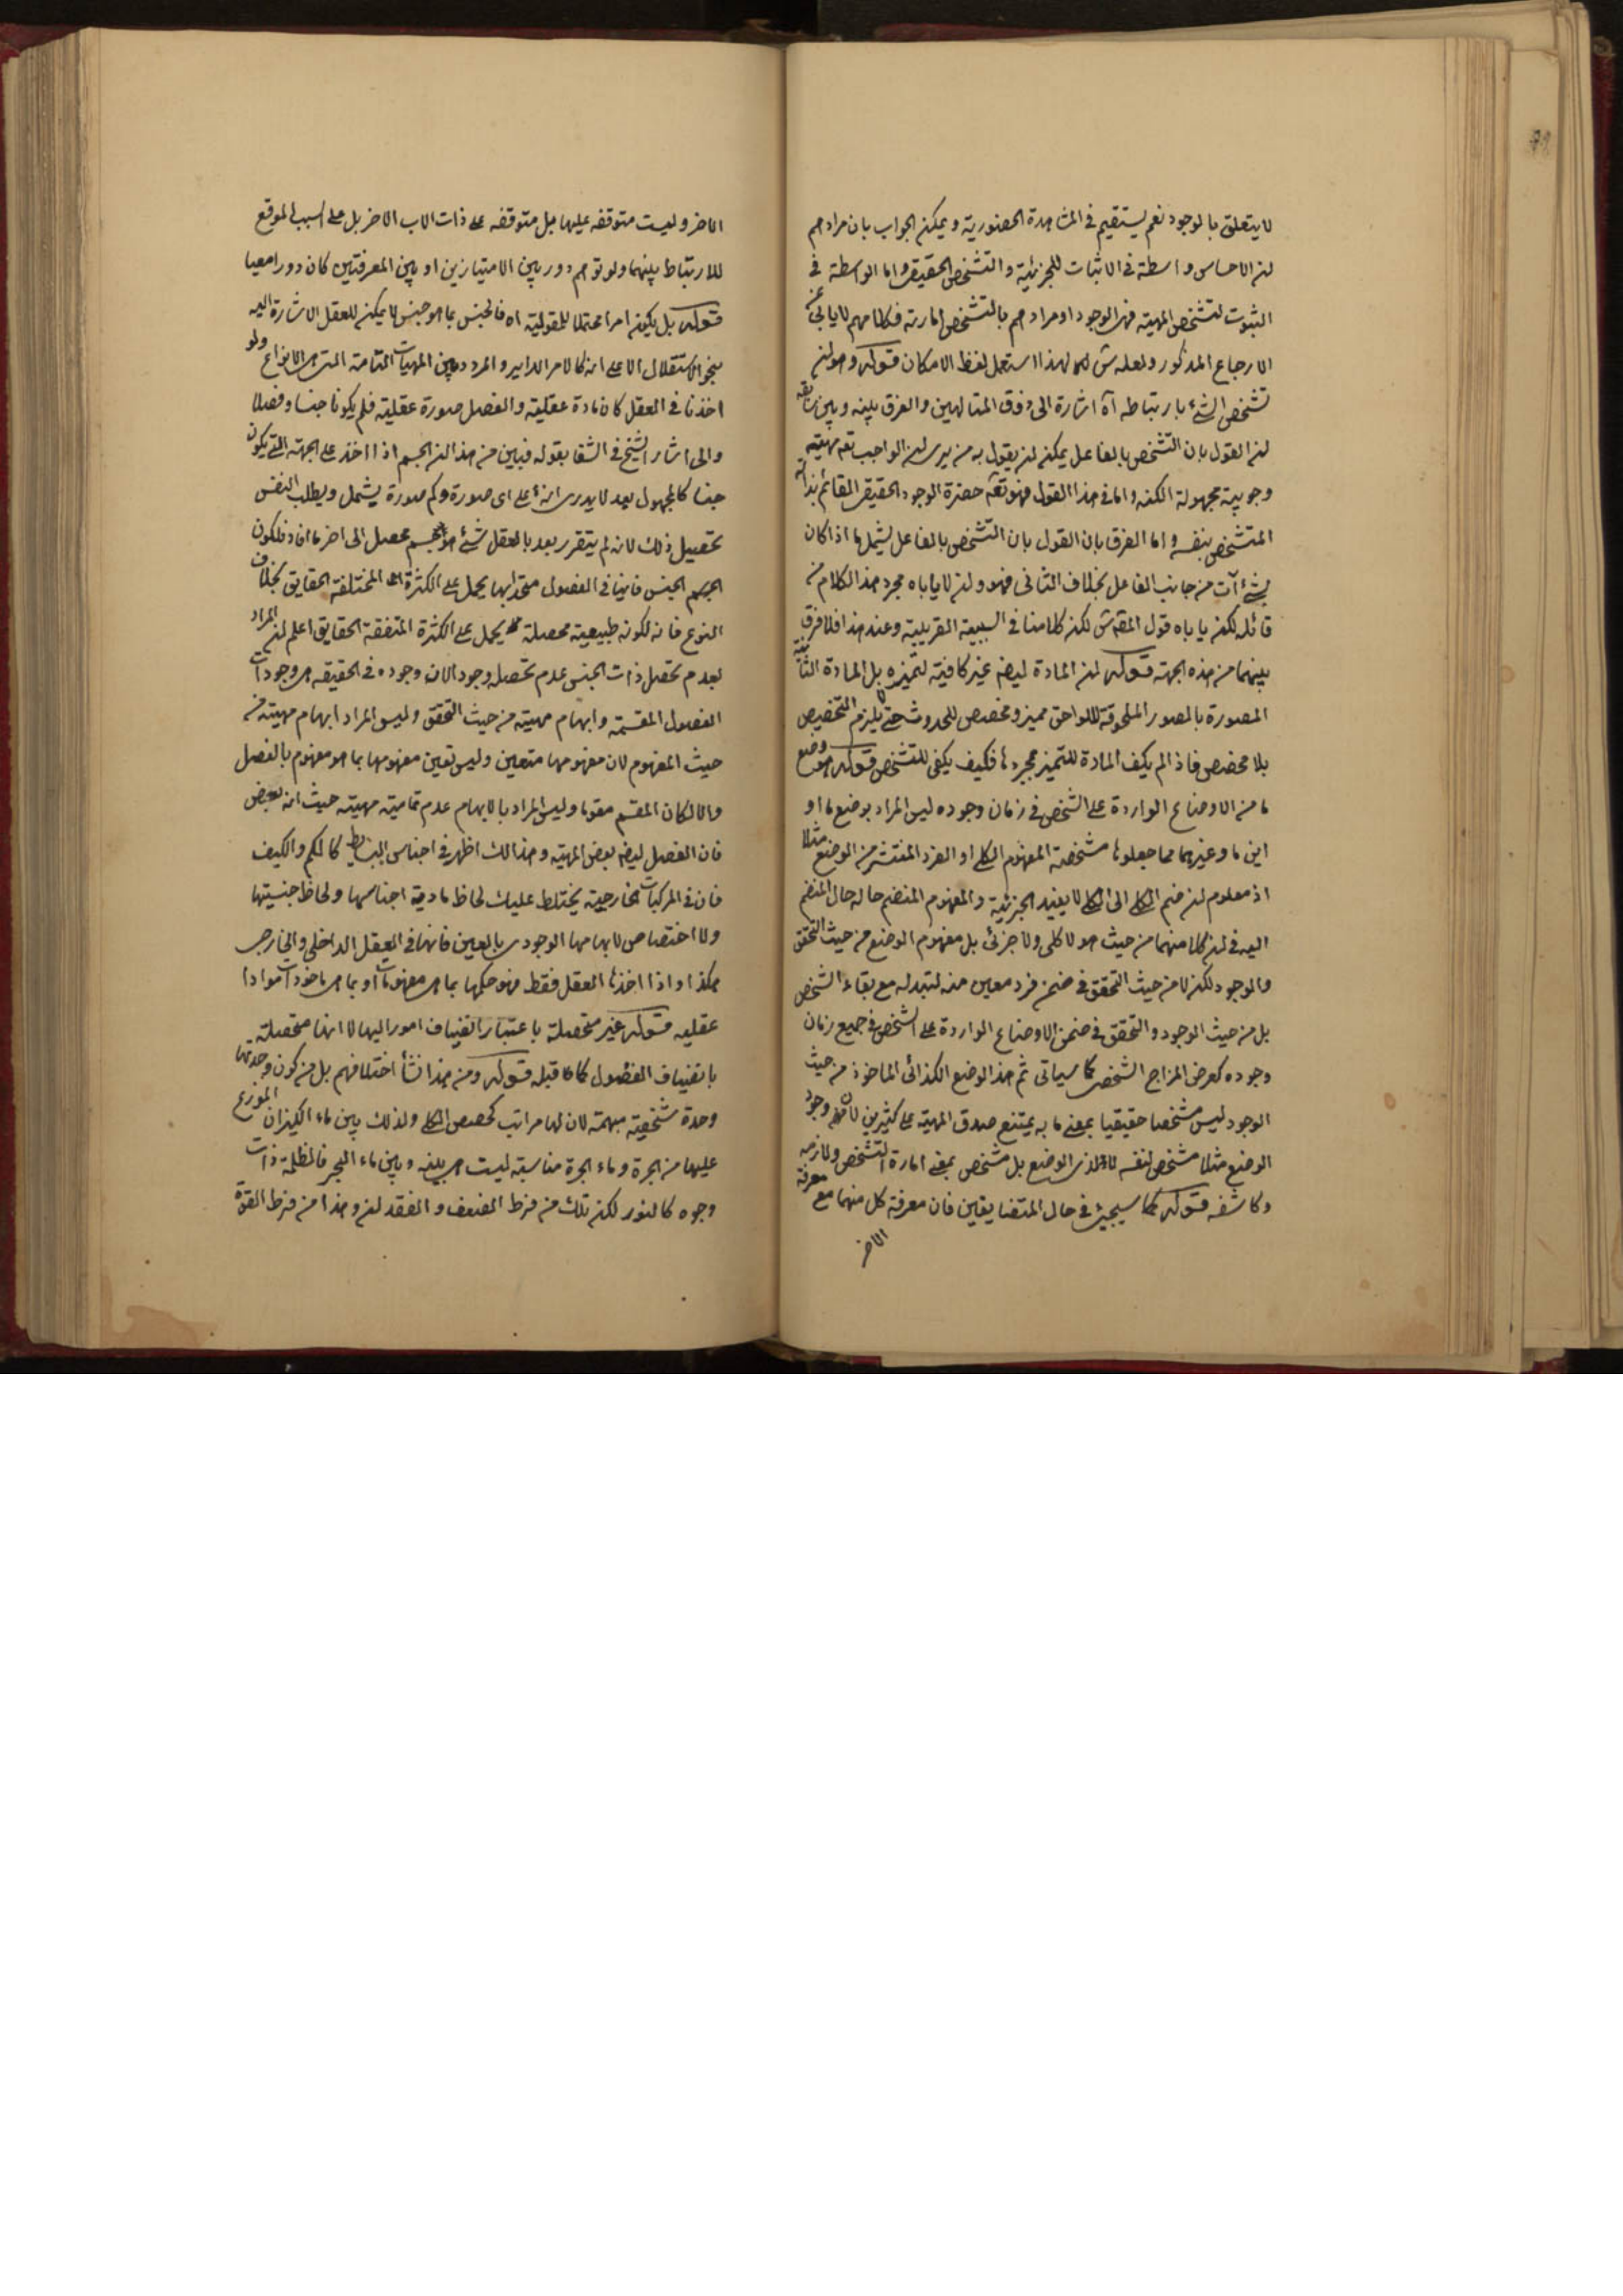 لا يتعلق بالوجود نعم يستقيم فى المشاهدة الحضورية ويمكن الجواب بان مرادهم
ان الاحساس واسطة فى الاثبات للجزئية والتشخص الحقيقى واما الواسطة فى
الثبوت لتشخص المهية فهى الوجود او مرادهم بالتشخص امارته فكلامهم لا يابى عن
الارجاع المذكور ولعله ش لهذا استعمل لفظ الامكان قوله وهو ان
تشخص الشئ بارتباطه آه اشارة الى ذوق المتالهين والفرق بينه وبين سابقه
ان القول بان التشخص بالفاعل يمكن ان يقول به من يرى ان الواجب تعه مهيته
وجوبية مجهولة الكنه واما فى هذا القول فهو تعه حضرة الوجود الحقيقى القائم بذاته
المتشخص بنفسه واما الفرق بان القول بان التشخص بالفاعل يشمل ما اذا كان
بشئ آت من جانب الفاعل بخلاف الثانى فهو وان لا ياباه مجرد هذا الكلام من
قائله لكن ياباه قول المصة ش لكن كلامنا فى السببية القريبة وعند هذا فلا فرق
بينهما من هذه الجهة قوله ان المادة ايضه غير كافية لتميزه بل المادة الثانية
المصورة بالصور الملحوقة للواحق مميز ومخصص للحدوث حتى لا يلزم التخصيص
بلا مخصص فاذا لم يكف المادة للتميز بمجردها فكيف يكفى للتشخص قوله هو وضع
ما من الاوضاع الواردة على الشخص فى زمان وجوده ليس المراد بوضع ما او
اين ما وغيرهما مما جعلوها مشخصة المفهوم الكلى او الفرد المنتشر من الوضع مثلا
اذ معلوم ان ضم الكلى الى الكلى لا يفيد الجزئية والمفهوم المنضم حاله حال المنضم
اليه فى ان كلا منهما من حيث هو لا كلى ولا جزئى بل مفهوم الوضع من حيث التحقق
والوجود لكن لا من حيث التحقق فى ضمن فرد معين منه لتبدله مع بقاء الشخص
بل من حيث الوجود والتحقق فى ضمن الاوضاع الواردة على الشخص فى جميع زمان
وجوده كعرض المزاج الشخصى كما سياتى ثم هذا الوضع الكذائى الماخوذ من حيث
الوجود ليس مشخصا حقيقيا بمعنى ما به يمتنع صدق المهية على كثيرين لان وجود
الوضع مثلا مشخص لنفسه لا لذى الوضع بل مشخص بمعنى امارة التشخص ولازمه
وكاشفه قوله كما سيجئ فى حال المتضايفين فان معرفة كل منهما مع معرفة
الاخر
الاخر وليست متوقفه عليها بل متوقفه على ذات الاب الاخر بل على السبب الموقع
للارتباط بينهما ولو توهم دور بين الامتيازين او بين المعرفتين كان دورا معيا
قوله بل يكون امرا محتملا للمقولية اه فالجنس بما هو جنس لا يمكن للعقل الاشارة اليه
بنحو الاستقلال الا على انه كالامر الداير والمردد بين المهيات التامة التى هى الانواع ولو
اخذنا فى العقل كان مادة عقلية والفصل صورة عقلية فلم يكونا جنسا وفصلا
والى اشار الشيخ فى الشفا بقوله فبين من هذا ان الجسم اذا اخذ على الجهة التى يكون
جنسا كالمجهول بعد لا يدرى انه على اى صورة وكم صورة يشمل ويطلب النفس
تحصيل ذلك لانه لم يتقرر بعد بالعقل شئ هو جسم محصل الى اخر ما افاد فلكون
الجسم الجنس فانيا فى الفصول متحدا بها يحمل على الكثرة المختلفة الحقايق بخلاف
النوع فانه لكونه طبيعية محصلة يحمل على الكثرة المتفقة الحقايق اعلم ان المراد
بعدم تحصل ذات الجنس عدم تحصله وجودا لان وجوده فى الحقيقه هى وجودات
الفصول المقسمة وابهام مهيته من حيث التحقق وليس المراد ابهام مهيته من
حيث المفهوم لان مفهومها متعين وليس تعين مفهومها بما هو مفهوم بالفصل
والا لكان المقسم مقوما وليس المراد بالابهام عدم تمامية مهيته حيث انه بعض
فان الفصل ايضه بعض المهية وهذا لك اظهر فى اجناس البسائط كالكم والكيف
فان فى المركبات الخارجية يختلط عليك لحاظ مادية اجناسها ولحاظ جنسيتها
ولا اختصاص لابهامها الوجودى بالعين فانها فى العقل الداخلى والخارجى
هكذا واذا اخذها العقل فقط فهو حكمها بما هى مفهومات او بما هى ماخوذات موادا
عقليه قوله غير متحصلة باعتبار انضياف امور اليها لا انها متحصلة
بانضياف الفصول كما قبله قوله ومن هذا نشأ اختلافهم بل من كون وحدتها
وحدة شخصية مبهمة لان لها مراتب كحصص الكلى ولذلك بين ماء الكيزان الموزع
عليها من الجرة وماء الجرة مناسبة ليست هى بينه وبين ماء البحر فالظلمة ذات
وجوه كالنور لكن تلك من فرط الضعف والفقدان وهذا من فرط القوة